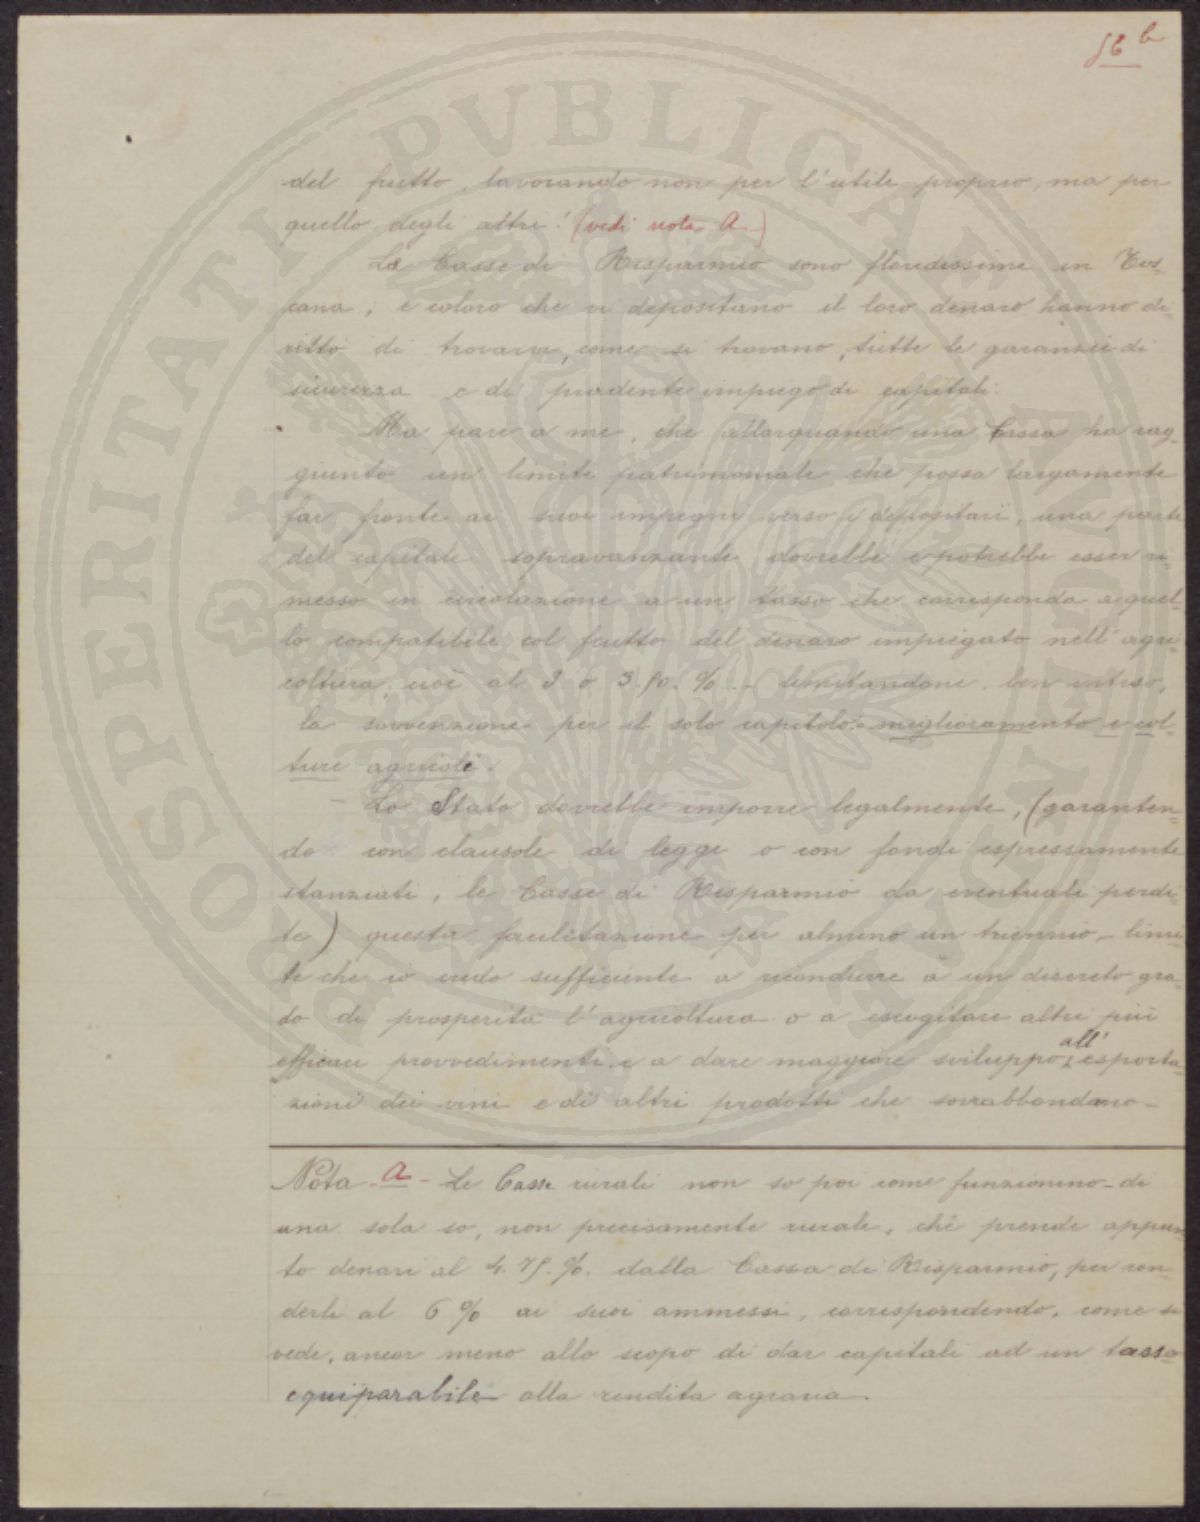 56 b
del frutto, lavorando non per l'utile proprio, ma per
quello degli altri! (vedi nota A.)
Le Casse di Risparmio sono floridissime in Tos-
cana, e coloro che vi depositano il loro denaro hanno di-
ritto di trovarvi, come si trovano, tutte le garanzie di
sicurezza e di prudente impiego di capitali.
Ma pare a me, che allorquando una Cassa ha rag-
giunto un limite patrimoniale che possa largamente
far fronte ai suoi impegni verso i depositari, una parte
del capitale sopravanzante dovrebbe e potrebbe esser ri-
messo in circolazione a un tasso che corrisponda a quel-
lo compatibile col frutto del denaro impiegato nell'agri-
coltura, cioè al 3 o 3.50.% - limitandone, ben inteso,
la sovvenzione per il solo capitolo: miglioramento e col-
ture agricole.
- Lo Stato dovrebbe imporre legalmente, (garanten-
do con clausole di legge o con fondi espressamente
stanziati, le Casse di Risparmio da eventuali perdi-
te) questa facilitazione per almeno un triennio, limi-
te che io credo sufficiente a ricondurre a un discreto gra-
do di prosperità l'agricoltura o a escogitare altri più
efficaci provvedimenti e a dare maggiore sviluppo all'esporta-
zioni dei vini e di altri prodotti che sovrabbondano -
Nota - A - Le Casse rurali non so poi come funzionino - di
una sola so, non precisamente rurale, che prende appun-
to denari al 4.75.%. dalla Cassa di Risparmio, per ren-
derli al 6% ai suoi ammessi, corrispondendo, come si
vede, ancor meno allo scopo di dar capitali ad un tasso
equiparabile alla rendita agraria.
PROSPERITATI PVBLICAE AVGENDAE